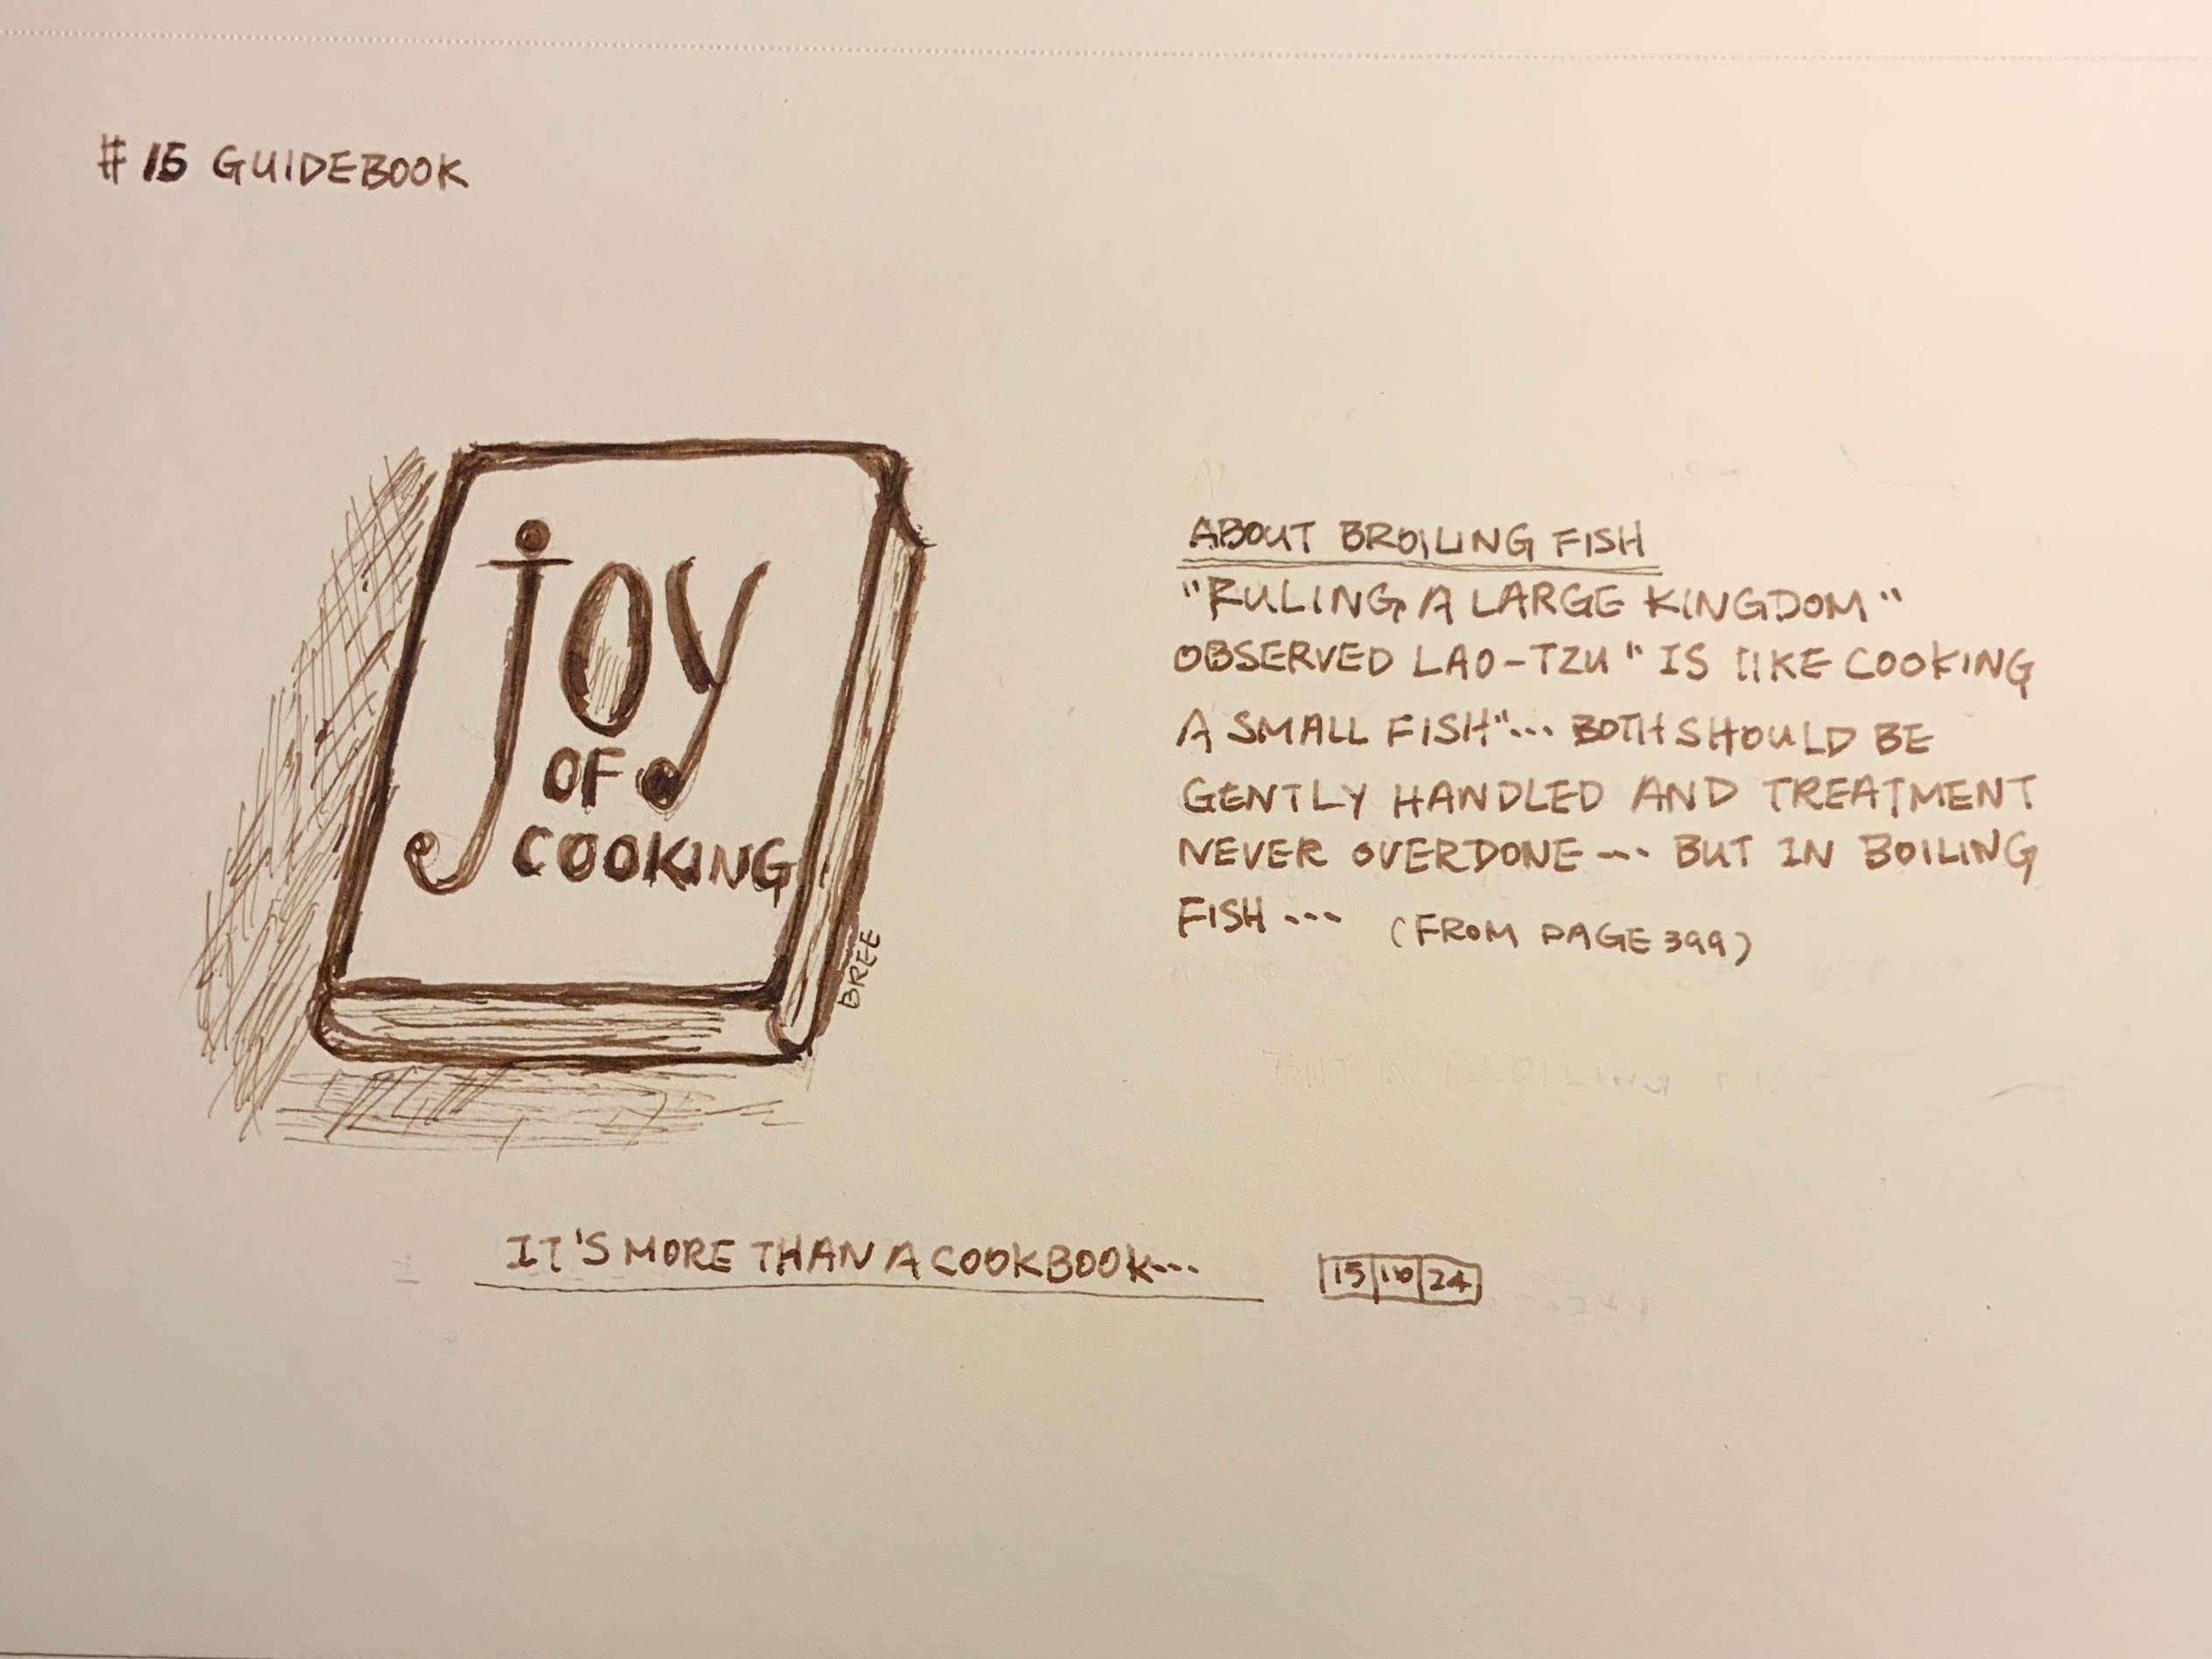 # 15 GUIDEBOOK
joy
OF
COOKING
BREE
ABOUT BROILING FISH
"RULING A LARGE KINGDOM"
OBSERVED LAO-TZU "IS LIKE COOKING
A SMALL FISH"... BOTH SHOULD BE
GENTLY HANDLED AND TREATMENT
NEVER OVERDONE --- BUT IN BOILING
FISH --- (FROM PAGE 399)
IT'S MORE THAN A COOKBOOK---
15|10|24